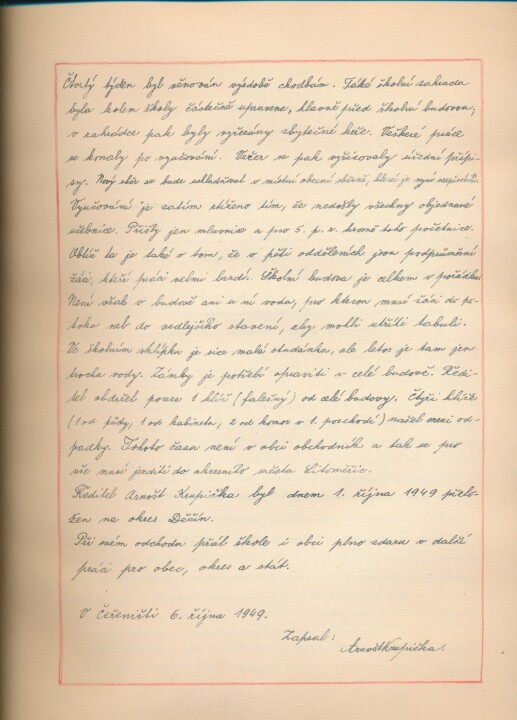 Čtvrtý týden byl věnován výzdobě chodbám. Také školní zahrada
byla kolem školy částečně upravena, hlavně před školní budovou,
v zahrádce pak byly vyřezány zbytečné keře. Veškeré práce
se konaly po vyučování. Večer se pak vyřizovaly úřední přípi-
sy. Nový sběr se bude uskladňovat v místní obecní stodole, která je nyní
Vyučování je zatím ztíženo tím, že nedošly všechny objednané
učebnice. Přišly jen mluvnice a pro 5. p. r. kromě toho početnice.
Obtíž tu je také v tom, že v pěti odděleních jsou podprůměrní
žáci, kteří práci velmi brzdí. Školní budova je celkem v pořádku.
Není však v budově ani u ní voda, pro kterou musí žáci do po-
toka neb do vedlejšího stavení, aby mohli utříti tabuli.
Ve školním sklípku je sice malá studánka, ale letos je tam jen
trocha vody. Zámky je potřebí opraviti v celé budově. Ředi-
tel obdržel pouze 1 klíč (falešný) od celé budovy. Čtyři klíče
(1 od půdy, 1 od kabinetu, 2 od komor v 1. poschodí) našel mezi od-
padky. Tohoto času není v obci obchodník a tak se pro
vše musí jezditi do okresního města Litoměřic.
Ředitel Arnošt Krupička byl dnem 1. října 1949 přelo-
žen na okres Děčín.
Při svém odchodu přál škole i obci plno zdaru v další
práci pro obec, okres a stát.
V Čeřeništi 6. října 1949.
Zapsal:
Arnošt Krupička.